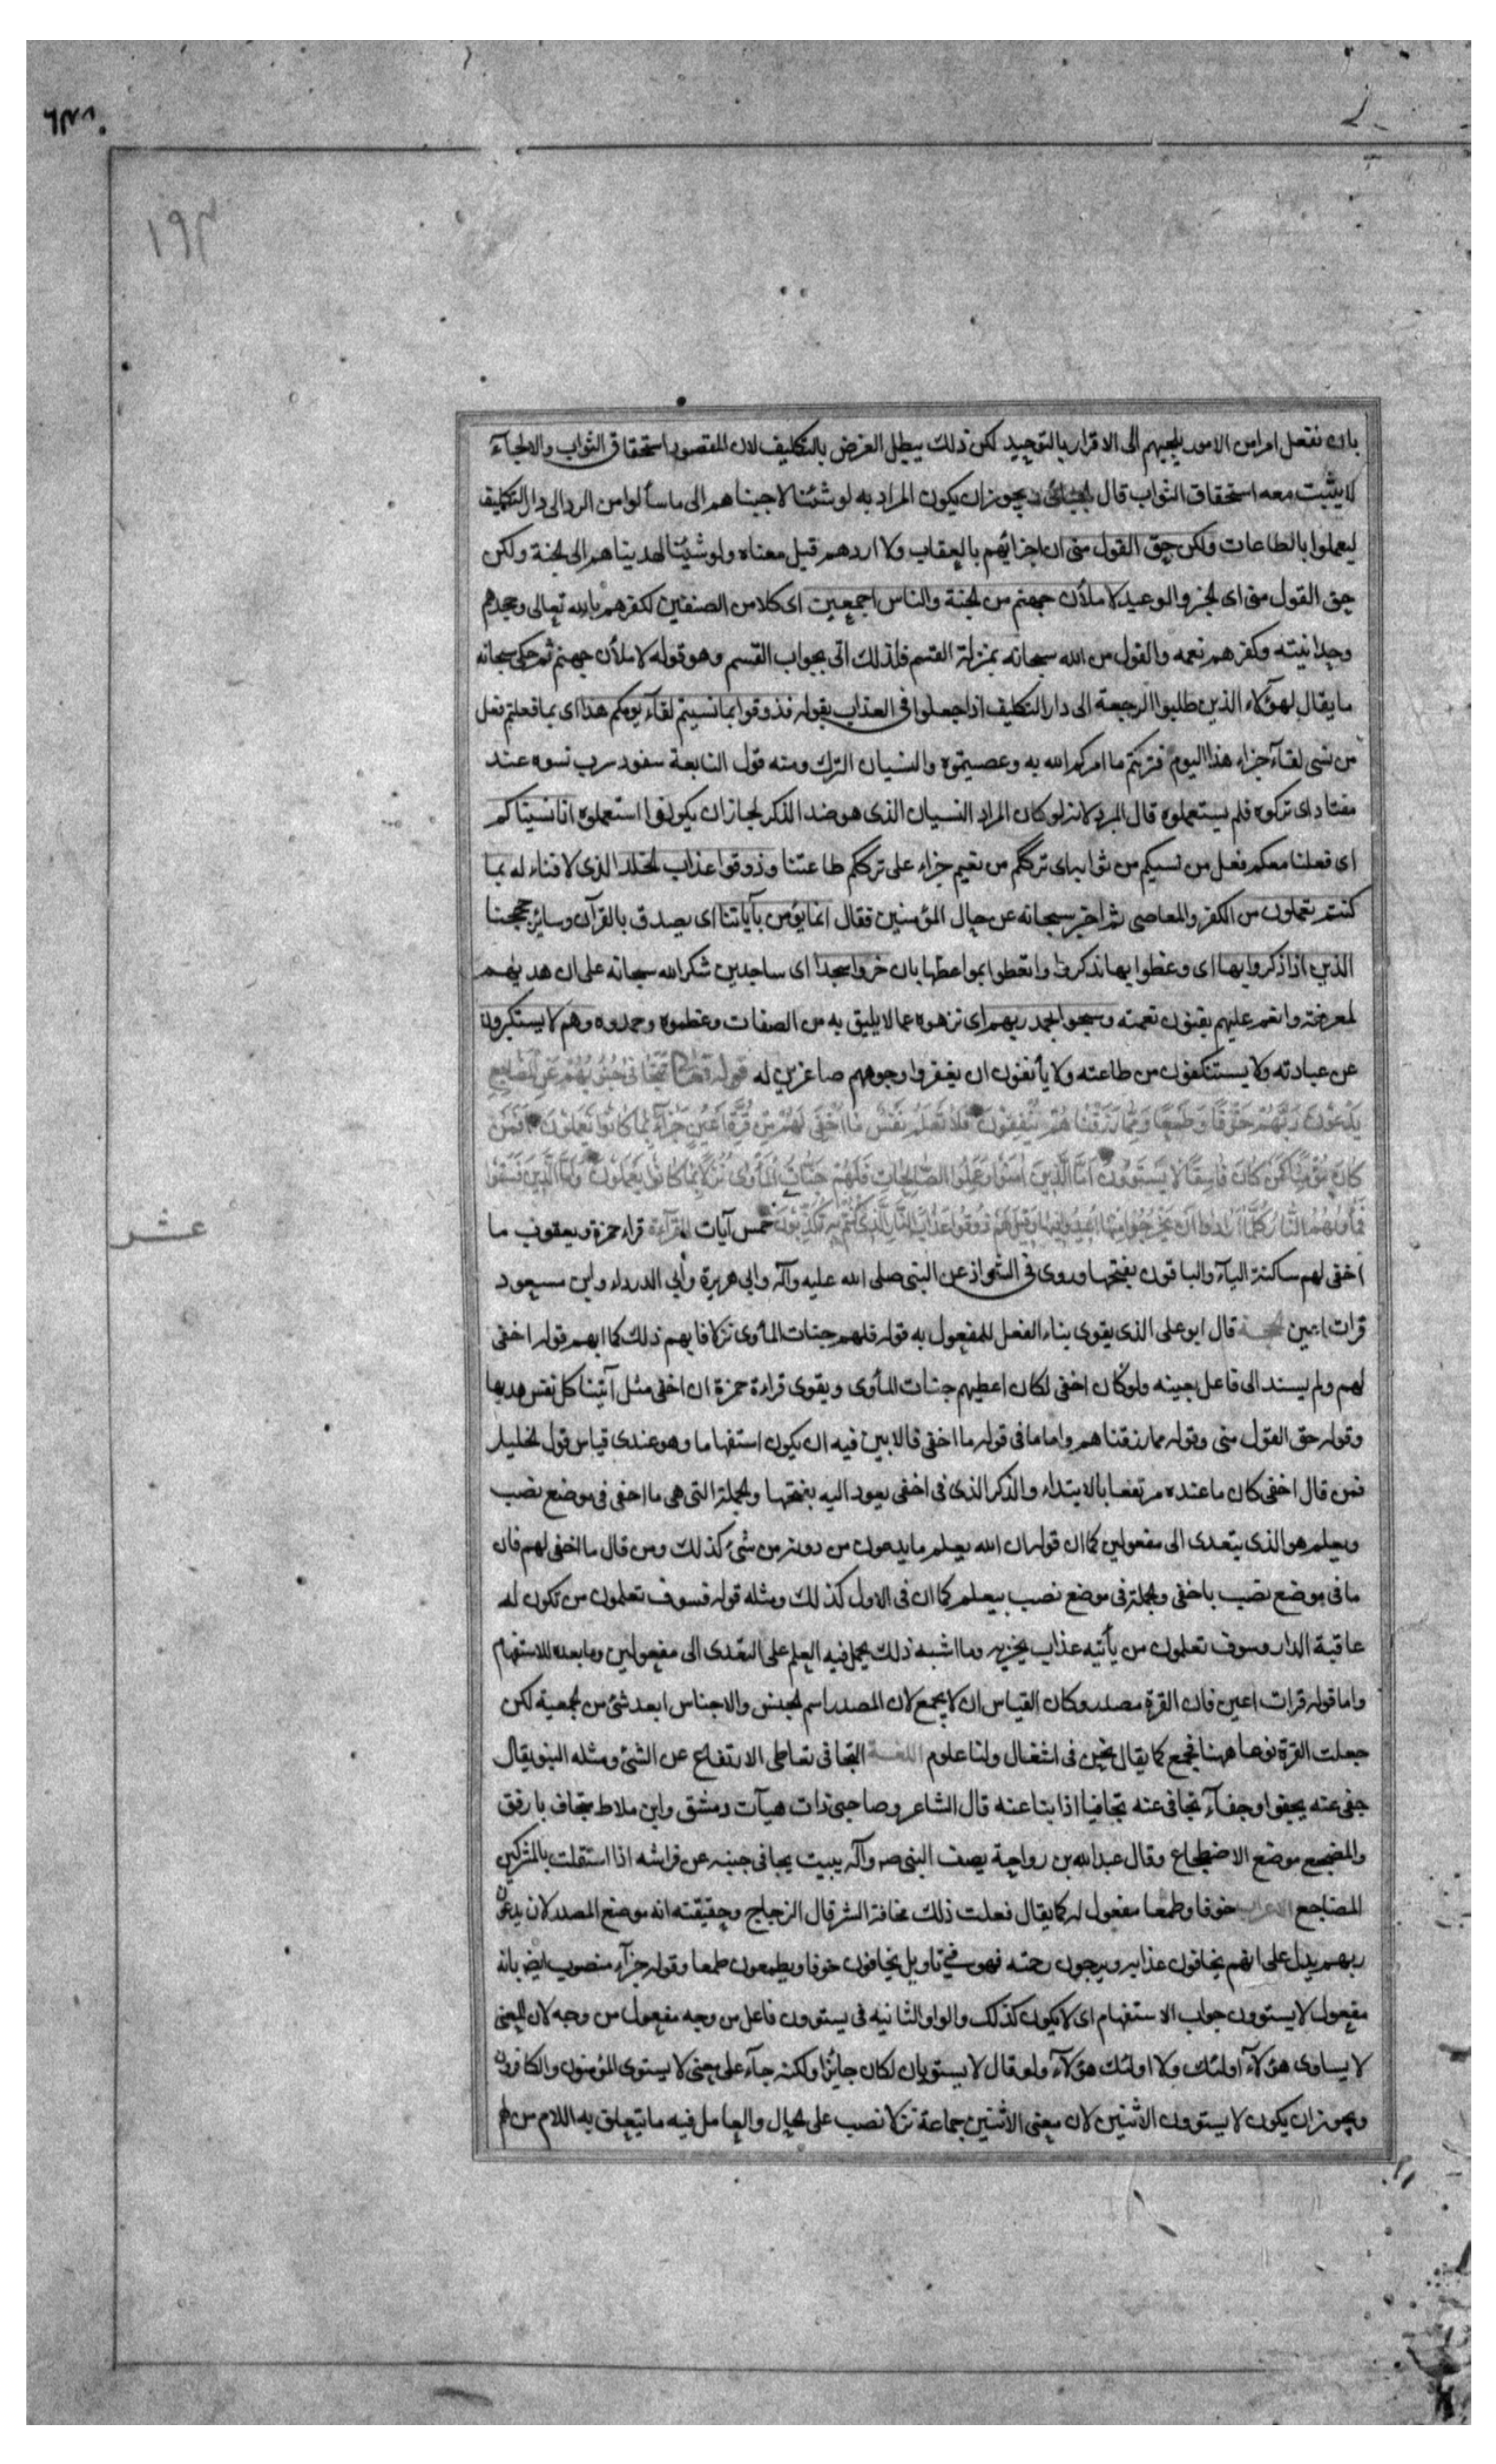 ١٩٣
بان نفعل امرا من الامور يلجيهم الى الاقرار بالتوحيد لكن ذلك يبطل الغرض بالتكليف لان المقصود استحقاق الثواب والالجآء
لا يثبت معه استحقاق الثواب قال الجبائى ويجوز ان يكون المراد به لو شئنا لاجبناهم الى ما سألوا من الرد الى دار التكليف
ليعملوا بالطاعات ولكن حق القول منى ان اجزائهم بالعقاب ولا اردهم قيل معناه ولو شئنا لهديناهم الى الجنة ولكن
حق القول منى اى الخبر والوعيد لاملأن جهنم من الجنة والناس اجمعين اى كلا من الصنفين لكفرهم بالله تعالى وجحدهم
وحدانيته وكفرهم نعمه والقول من الله سبحانه بمنزلة القسم فلذلك اتى بجواب القسم وهو قوله لاملأن جهنم ثم حكى سبحانه
ما يقال لهؤلاء الذين طلبوا الرجعة الى دار التكليف اذا جعلوا فى العذاب بقوله فذوقوا بما نسيتم لقآء يومكم هذا اى بما فعلتم فعل
من نسى لقآء جزاء هذا اليوم فتركتم ما امركم الله به وعصيتموه والنسيان الترك ومنه قول النابعة سفود سرب نسوه عند
مفتاد اى تركوه فلم يستعملوه قال المبرد لانه لو كان المراد النسيان الذى هو ضد الذكر لجاز ان يكونوا استعملوه انا نسيناكم
اى فعلنا معكم فعل من نسيكم من ثوابه اى ترككم من نعيم جزاء على ترككم طاعتنا وذوقوا عذاب الخلد الذى لا فناء له بما
كنتم تعملون من الكفر والمعاصى ثم اخبر سبحانه عن حال المؤمنين فقال انما يؤمن بآياتنا اى يصدق بالقرآن وساير حججنا
الذين اذا ذكروا بها اى وعظوا بها تذكروا واتعظوا بمواعظها بان خروا سجدا اى ساجدين شكرا لله سبحانه على ان هديهم
لمعرفته وانعم عليهم بفنون نعمته وسبحوا بحمد ربهم اى نزهوه عما لا يليق به من الصفات وعظموه وحمدوه وهم لا يستكبرون
عن عبادته ولا يستنكفون من طاعته ولا يأنفون ان يعفروا وجوههم صاغرين له قوله تعالى تَتَجَافى جُنُوبُهُمْ عَنِ الْمَضَاجِعِ
يَدْعُونَ رَبَّهُمْ خَوْفًا وَطَمَعًا وَمِمَّا رَزَقْنَاهُمْ يُنْفِقُونَ فَلا تَعْلَمُ نَفْسٌ مَا أُخْفِيَ لَهُمْ مِنْ قُرَّةِ أَعْيُنٍ جَزَاءً بِمَا كَانُوا يَعْمَلُونَ أَفَمَنْ
كَانَ مُؤْمِنًا كَمَنْ كَانَ فَاسِقًا لَا يَسْتَوُونَ أَمَّا الَّذِينَ آمَنُوا وَعَمِلُوا الصَّالِحَاتِ فَلَهُمْ جَنَّاتُ الْمَأْوى نُزُلًا بِمَا كَانُوا يَعْمَلُونَ وَأَمَّا الَّذِينَ فَسَقُوا
فَمَأْوٰهُمُ النَّارُ كُلَّمَا أَرَادُوا أَنْ يَخْرُجُوا مِنْهَا أُعِيدُوا فِيهَا وَقِيلَ لَهُمْ ذُوقُوا عَذَابَ النَّارِ الَّذِي كُنْتُمْ بِهِ تُكَذِّبُونَ خمس آيات القرآءة قراء حمزة ويعقوب ما
عشر
اخفى لهم ساكنة اليآء والباقون بفتحها وروى فى الشواذ عن النبى صلى الله عليه وآله وابى هريرة وأبى الدرداء وابن مسعود
قرات اعين الحجة قال ابو على الذى يقوى بناء الفعل للمفعول به قوله فلهم جنات المأوى نزلا فابهم ذلك كما ابهم قوله اخفى
لهم ولم يسند الى فاعل بعينه ولو كان اخفى لكان اعطيهم جنات المأوى ويقوى قراءة حمزة ان اخفى مثل آتينا كل نفس هديها
وقوله حق القول منى وقوله مما رزقناهم واما ما فى قوله ما اخفى فالابين فيه ان يكون استفهاما وهو عندى قياس قول الخليل
فمن قال اخفى كان ما عنده مرتفعا بالابتداء والذكر الذى فى اخفى يعود اليه بفتحها والجملة التى هى ما اخفى فى موضع نصب
ويعلم هو الذى يتعدى الى مفعولين كما ان قوله ان الله يعلم ما يدعون من دونه من شئ كذلك ومن قال ما اخفى لهم فان
ما فى موضع نصب باخفى والجملة فى موضع نصب بيعلم كما ان فى الاول كذلك ومثله قوله فسوف تعلمون من تكون له
عاقبة الدار وسوف تعلمون من يأتيه عذاب يخزيه وما اشبه ذلك يحمل فيه العلم على التعدى الى مفعولين وما بعده للاستفهام
واما قوله قرات اعين فان القرة مصدر وكان القياس ان لا يجمع لان المصدر اسم الجنس والاجناس ابعد شئ من الجمعية لكن
جعلت القرة نوعا ههنا فجمع كما يقال نحن فى اشغال ولنا علوم اللغة التجافى تعاطى الارتفاع عن الشئ ومثله النبو يقال
جفى عنه يجفوا وجفآء تجافى عنه تجافيا اذا نبا عنه قال الشاعر وصاحبى ذات هبآت دمشق وابن ملاط متجاف بارفق
والمضجع موضع الاضطجاع وقال عبد الله بن رواحة يصف النبى صه وآله يبيت يجافى جنبه عن فراشه اذا استقلت بالمشركين
المضاجع الاعراب خوفا وطمعا مفعول له كما يقال فعلت ذلك مخافة الشر قال الزجاج وحقيقته انه موضع المصدر لان يدعون
ربهم يدل على انهم يخافون عذابه ويرجون رحمته فهو فى تاويل يخافون خوفا ويطمعون طمعا وقوله جزآء منصوب ايض بانه
مفعول لا يستوون جواب الاستفهام اى لا يكون كذلك والواو الثانيه فى يستوون فاعل من وجه مفعول من وجه لان المعنى
لا يساوى هؤلآء اولئك ولا اولئك هؤلآء ولو قال لا يستويان لكان جايزا ولكنه جآء على معنى لا يستوى المؤمنون والكافرون
ويجوز ان يكون لا يستوون الاثنين لان معنى الاثنين جماعة نزلا نصب على الحال والعامل فيه ما يتعلق به اللام من لهم